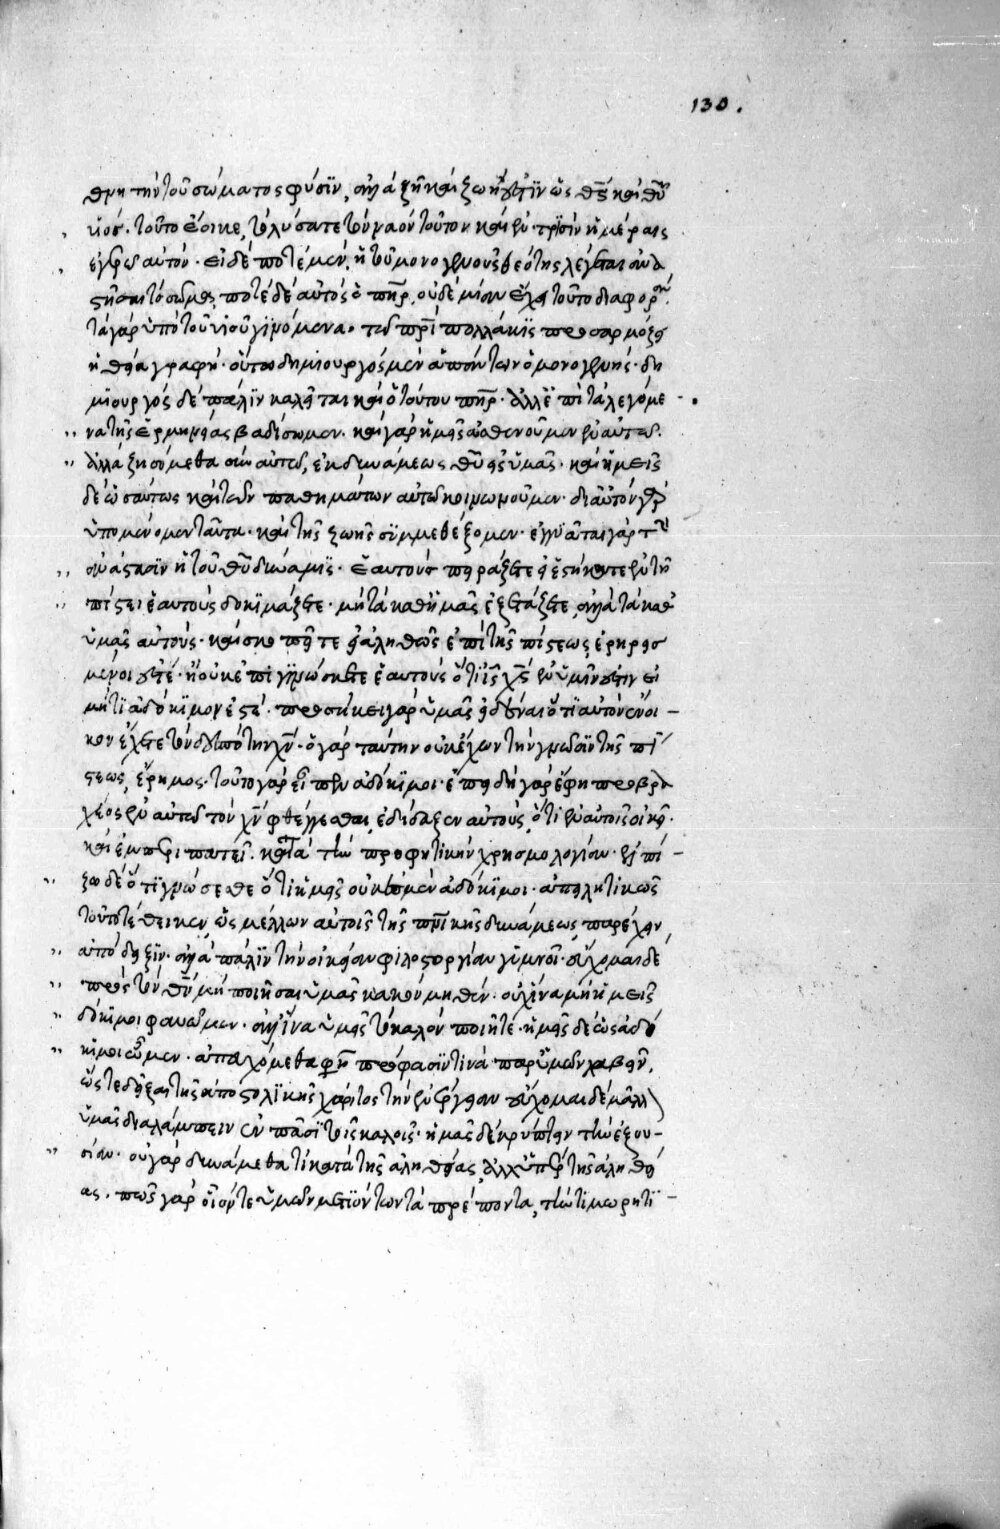 130.
θρη τὴν τοῦ σώματος φύσϊν, ἀλλὰ ζῆ καὶ ζωή ἐστϊν ὡς θς καὶ θῦ
υἱός. τοῦτο ἔοικε τὸ λύσατε τὸν ναὸν τοῦτον καὶ ἐν τρϊσὶν ἡμέραις
ἐγερῶ αὐτόν. εἰ δέ ποτὲ μὲν ἡ τοῦ μονογενοῦς θεότης λέγεται ἀνα
στῆσαι τὸ σῶμα, ποτὲ δὲ αὐτὸς ὁ πηρ, οὐδεμίαν ἔχει τοῦτο διαφοράν.
τὰ γὰρ ὑπὸ τοῦ υἱοῦ γϊνόμενα τῶ πρὶ πολλάκϊς προσαρμόζει
ἡ θεία γραφή. οὕτω δημιουργὸς μὲν ἁπάντων ὁ μονογενής. δη
μϊουργὸς δὲ πάλϊν καλεῖται καὶ ὁ τούτου πηρ. ἀλλ' ἐπὶ τὰ λεγόμε
να τῆς ἑρμηνείας βαδίσωμεν. καὶ γὰρ ἡμεῖς ἀσθενοῦμεν ἐν αὐτῶ.
ἀλλὰ ζησόμεθα σὺν αὐτῶ, ἐκ δυνάμεως θῦ εἰς ὑμᾶς. καὶ ἡμεῖς
δὲ ὡσαύτως καὶ τῶν παθημάτων αὐτῶ κοινωνοῦμεν. δι αὐτὸν γὰρ
ὑπομένομεν ταῦτα. καὶ τῆς ζωῆς συμμεθέξομεν. ἐγγυᾶται γὰρ τὴν
ἀνάστασϊν ἡ τοῦ θῦ δύναμϊς. ἑαυτοὺς πειράζετε εἰ ἐστήκατε ἐν τῆ
πίστει ἑαυτοὺς δοκϊμάζετε. μὴ τὰ καθ' ἡμᾶς ἐξετάζετε, ἀλλὰ τὰ καθ'
ὑμᾶς αὐτούς. καὶ σκοπεῖτε εἰ ἀληθῶς ἐπὶ τῆς πίστεως ἐρηρεισ
μένοι ἐστέ. ἢ οὐκ ἐπϊγϊνώσκετε ἑαυτοὺς ὅτι ἰς χς ἐν ὑμῖν ἐστιν εἰ
μή τϊ ἀδόκϊμοι ἐστέ. προσήκει γὰρ ὑμᾶς εἰδέναι ὅτϊ αὐτὸν ἔνοι
κον ἔχετε τὸν δεσπότην χν. ὁ γὰρ ταύτην οὐκ ἔχων τὴν γνῶσϊν τῆς πί
στεως, ἔρημος. τοῦτο γὰρ εἶπεν ἀδόκϊμοι. ἐπειδὴ γὰρ ἔφη προβρα
χέος ἐν αὐτῶ τὸν χν φθέγγεσθαι, ἐδίδαξεν αὐτοὺς, ὅτϊ ἐν αὐτοῖς οἰκεῖ.
καὶ ἐμπεριπατεῖ. κατὰ τὴν προφητικὴν χρησμολογίαν. ἐλπί
ζω δὲ ὅτϊ γνώσεσθε ὅτι ἡμεῖς οὐκ ἐσμὲν ἀδόκϊμοι. ἀπειλητικῶς
τοῦτο τέθεικεν, ὡς μέλλων αὐτοῖς τῆς πνικῆς δυνάμεως παρέχειν
ἀπόδειξιν. ἀλλὰ πάλϊν τὴν οἰκείαν φιλοστοργίαν γυμνοῖ. εὔχομαι δὲ
πρὸς τὸν θν μὴ ποιῆσαι ὑμᾶς κακὸν μηθέν. οὐχ ἵνα μὴ ἡμεῖς
δόκϊμοι φανῶμεν. ἀλλ' ἵνα ὑμεῖς τὸ καλὸν ποιῆτε. ἡμεῖς δὲ ὡς ἀδό
κϊμοι ὦμεν. ἀπευχόμεθα φησὶ πρόφασϊν τινὰ παρ' ὑμῶν λαβεῖν,
ὥστε δεῖξαι τῆς ἀποστολϊκῆς χάριτος τὴν ἐνέργειαν εὔχομαι δὲ μᾶλλον
ὑμᾶς διαλάμπειν ἐν πᾶσϊ τοῖς καλοῖς. ἡμᾶς δὲ κρύπτειν τὴν ἐξου-
σίαν. οὐ γὰρ δυνάμεθά τι κατὰ τῆς ἀληθείας, ἀλλ' ὑπὲρ τῆς ἀληθεί
ας. πῶς γὰρ οἷόν τε ὑμῶν μετϊόντων τὰ πρέποντα, τὴν τιμωρητϊ-